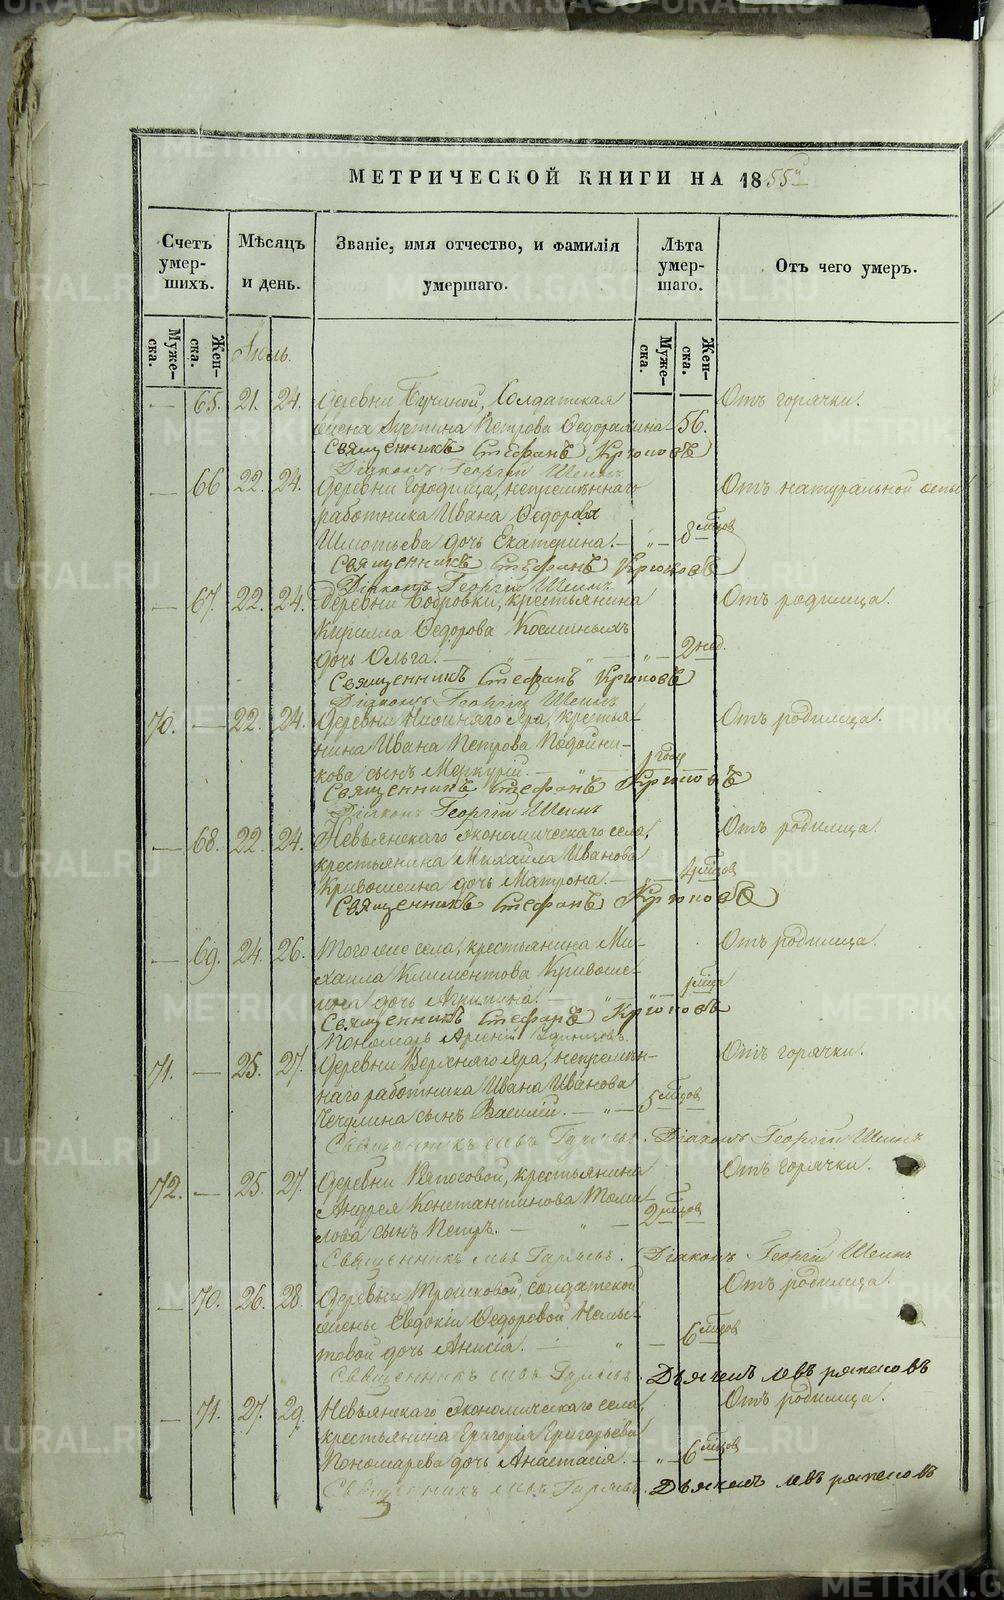 МЕТРИЧЕСКОЙ КНИГИ НА 1855й
Счетъ умер-шихъ.
Мѣсяцъ и день.
Званіе, имя отчество, и фамилія умершаго.
Лѣта умер-шаго.
Отъ чего умеръ.
Муже-ска.
Жен-ска.
Іюль.
Муже-ска.
Жен-ска.
— 65. 21. 24. Деревни Бучиной, Солдатская Отъ горячки.
жена Устина Петрова Ѳедорахина 56.
Священникъ Стефанъ Крюковъ
Діаконъ Георгій Шеинъ
— 66 22. 24. Деревни Городища, непремѣннаго Отъ натуральной оспы
работника Ивана Ѳедорова
дочь Екатерина. — „ — 8 мцов
Священникъ Стефанъ Крюковъ
Діаконъ Георгій Шеинъ
— 67. 22. 24. Деревни Бобровки, крестьянина Отъ родимца.
Кирилла Ѳедорова
дочь Ольга. — „ — „ — 2 нед.
Священникъ Стефанъ Крюковъ
Діаконъ Георгій Шеинъ
70. — 22. 24. Деревни Нижняго Яра, крестья- Отъ родимца.
нина Ивана Петрова Подойни-
кова сынъ Меркурій. — „ — 1 году
Священникъ Стефанъ Крюковъ
Діаконъ Георгій Шеинъ
— 68. 22. 24. Невьянскаго экономическаго села, Отъ родимца.
крестьянина Михаила Иванова
Кривошеина дочь Матрона. — 4 мцов
Священникъ Стефанъ Крюковъ
— 69. 24. 26. Того же села, крестьянина Ми- Отъ родимца.
хаила Климентова Кривоше-
ина дочь Агрипина. „ — 1 мца
Священникъ Стефанъ Крюковъ
Пономарь Арсеній
71. — 25. 27. Деревни Верхняго Яра, непремѣн- Отъ горячки.
наго работника Ивана Иванова
Чечулина сынъ Василій. — „ — 5 мцов
Священникъ Діаконъ Георгій Шеинъ
72. — 25. 27. Деревни Ряпосовой, крестьянина Отъ горячки.
Андрея Константинова Томи-
лова сынъ Петръ. — „ — 2 мцов
Священникъ Діаконъ Георгій Шеинъ
— 70. 26. 28. Деревни Трошковой, солдатской Отъ родимца.
жены Евдокіи Ѳедоровой
дочь Анисія. — „ — 6 мцов
Священникъ Дьячекъ Левъ
— 71. 27. 29. Невьянскаго экономическаго села, Отъ родимца.
крестьянина Григорія Григорьева
Пономарева дочь Анастасія. — „ — 6 мцов
Священникъ Дьячекъ Левъ
METRIKI.GASO-URAL.RU